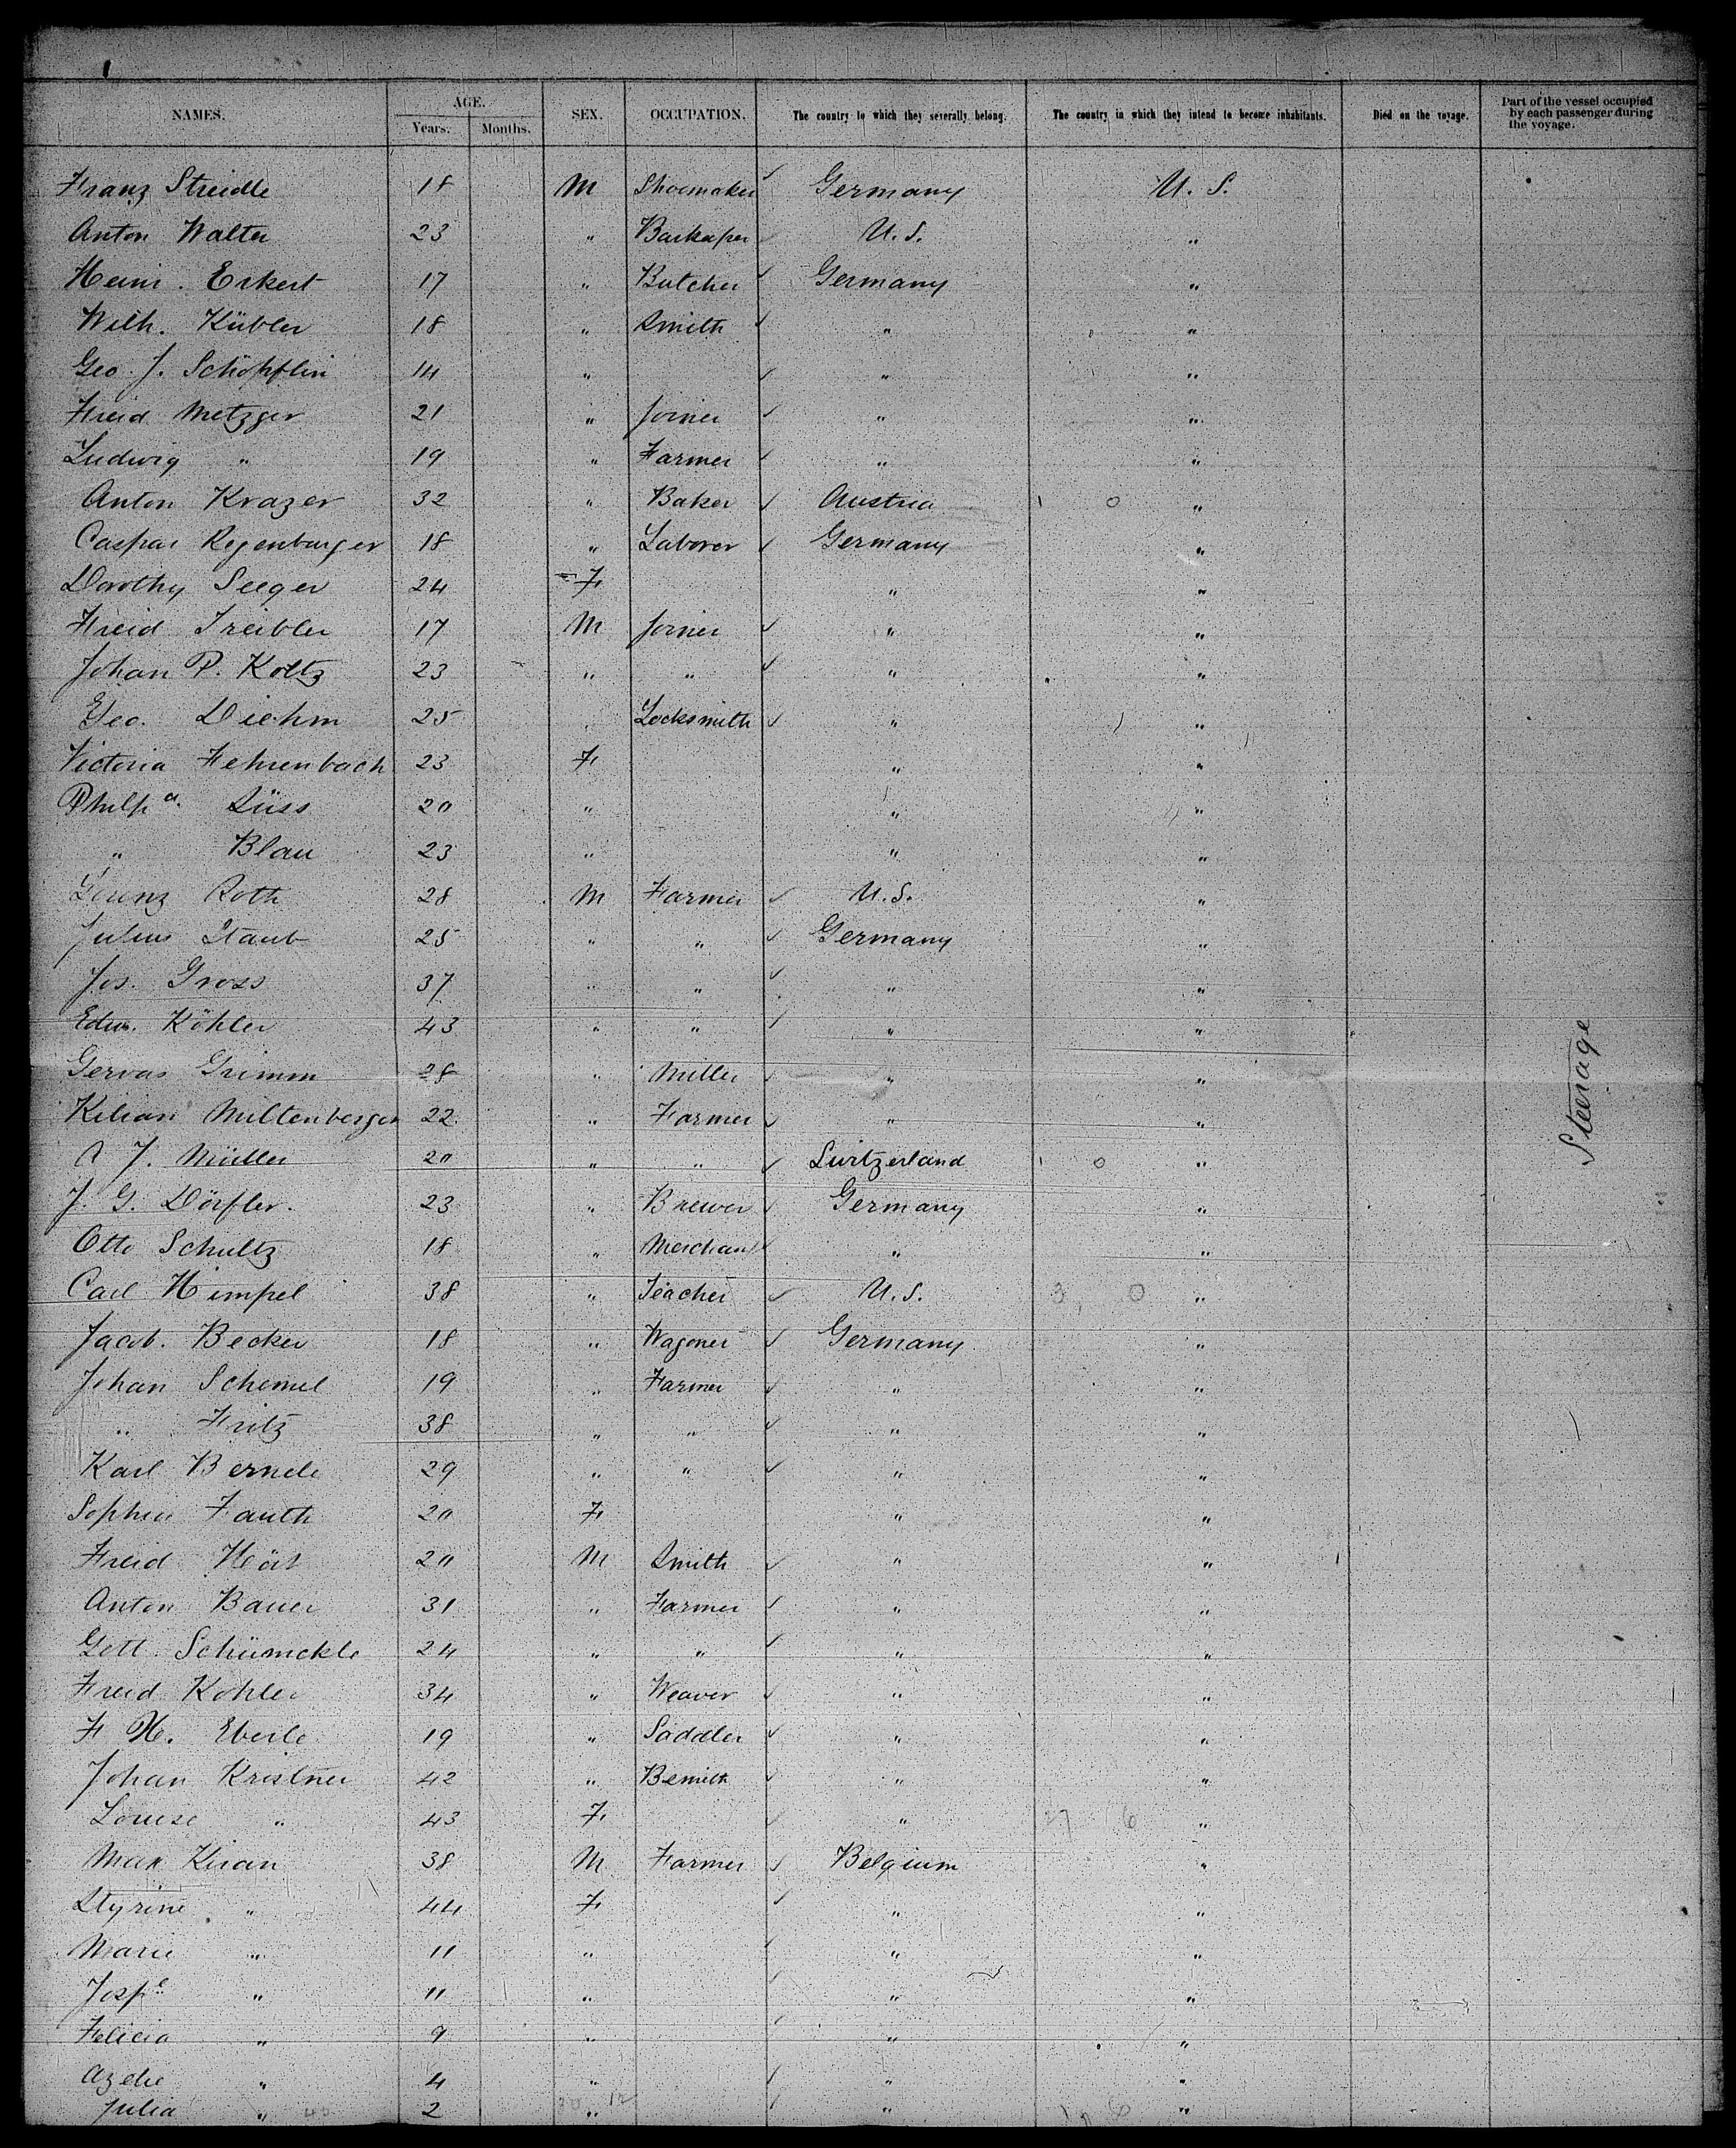 NAMES. AGE. SEX. OCCUPATION. The country to which they severally belong. The country in which they intend to become inhabitants. Died on the voyage. Part of the vessel occupied by each passenger during the voyage.
Years. Months.
Franz Streidle 18 M Shoemaker Germany U. S.
Anton Walter 23 " Barkeper U. S. "
Heinr. Erkert 17 " Butcher Germany "
Wilh. Kübler 18 " Smith " "
Geo. J. Schöpflin 14 " " "
Freid Metzger 21 " Joiner " "
Ludwig " 19 " Farmer " "
Anton Krazer 32 " Baker Austria 1 0 "
Caspar Regenburger 18 " Laborer Germany "
Dorothy Seeger 24 F " "
Freid Treibler 17 M Joiner " "
Johan P. Koltz 23 " " " "
Geo. Diehm 25 " Locksmith " "
Victoria Fehrenbach 23 F " "
Philpa. Süss 20 " " "
" Blau 23 " " "
Roth 28 M Farmer U. S. "
Julius Staub 25 " " Germany "
Jos. Gross 37 " " " "
Edw. Köhler 43 " " " "
Gervas Grimm 28 " Miller " "
Kilian Miltenberger 22 " Farmer " "
A J. Müller 20 " " Switzerland 1 0 "
J. G. Dörfler. 23 " Brewer Germany "
Otto Schultz 18 " Merchant " "
Carl Himpel 38 " Teacher U. S. 3 0 "
Jacob. Becker 18 " Wagoner Germany "
Johan Schemel 19 " Farmer " "
" Fritz 38 " " " "
Karl Bernde 29 " " " "
Sophia Fauth 20 F " "
Freid 20 M Smith " "
Anton Bauer 31 " Farmer " "
Gott. Schümckle 24 " " " "
Freid Kohler 34 " Weaver " "
F H. Eberle 19 " Saddler " "
Johan Kristner 42 " Bsmith " "
Louise " 43 F " 27 6 "
Max Kiran 38 M Farmer Belgium "
Styrine " 44 F " "
Marie " 11 " " "
Jospe " 11 " " "
Felicia " 9 " " "
Azelie " 4 " " "
Julia " 2 " " "
Steerage